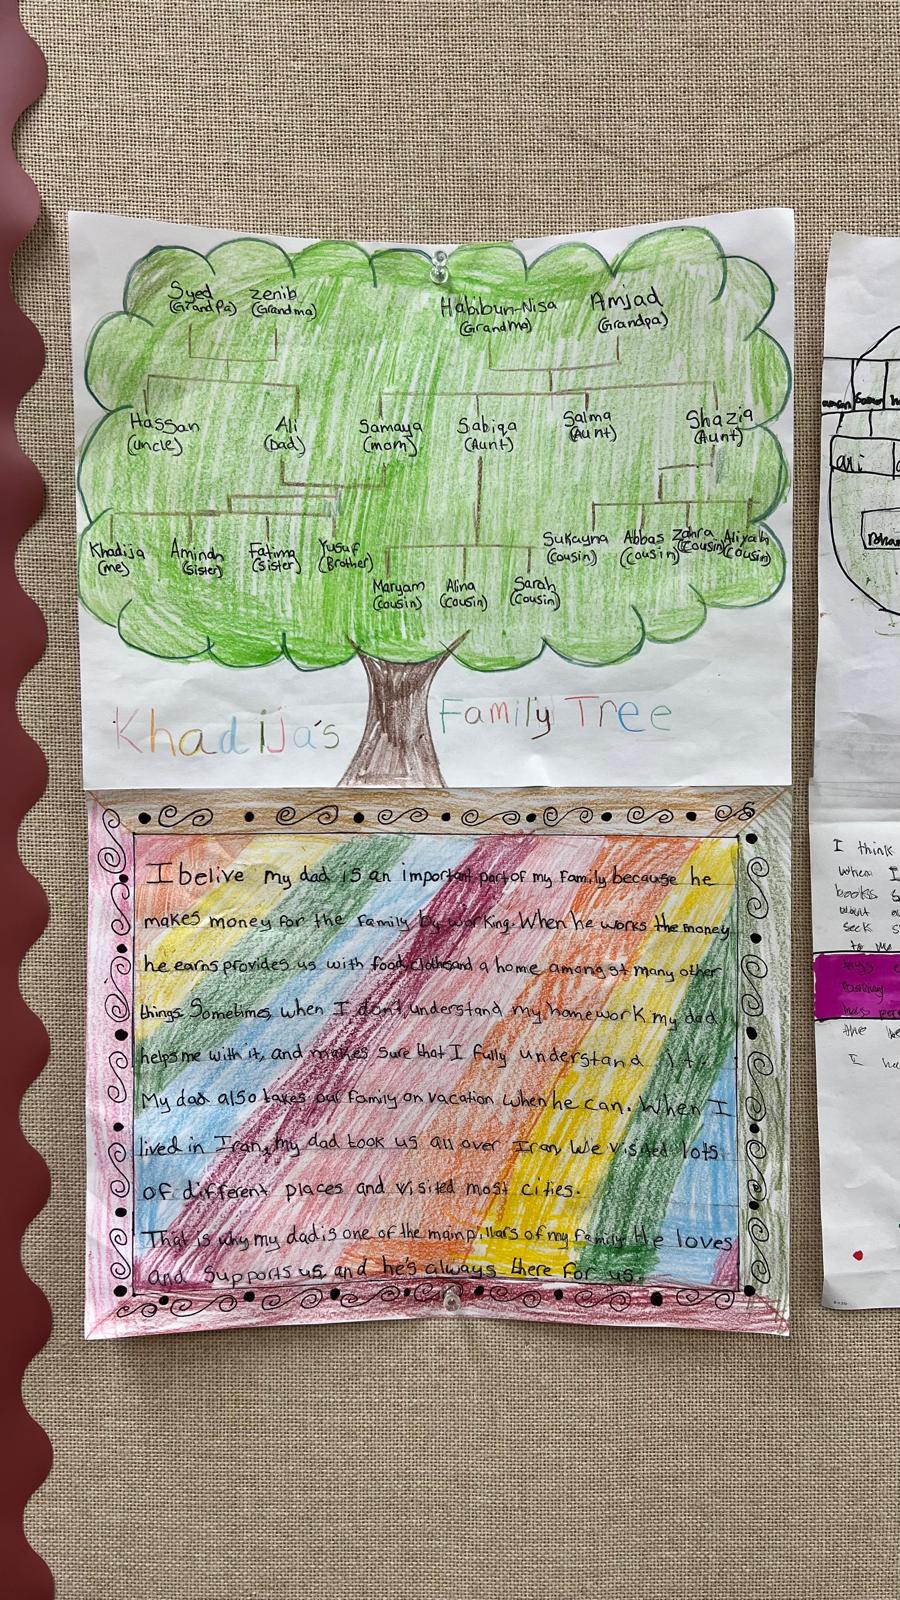 Syed Zenib Habibun-Nisa Amjad
(Grandpa) (Grandma) (Grandma) (Grandpa)
Hassan Ali Samaya Sabiqa Salma Shazia
(uncle) (Dad) (mom) (Aunt) (Aunt) (Aunt)
Khadija Aminah Fatima Yusuf Sukayna Abbas Zahra Aliyah
(me) (sister) (sister) (Brother) (cousin) (cousin) (cousin) (cousin)
Maryam Alina Sarah
(cousin) (cousin) (cousin)
Khadija's Family Tree
I belive my dad is an important part of my family because he
makes money for the family by working. When he works the money
he earns provides us with food, clothes and a home amongst many other
things. Sometimes, when I don't understand my homework my dad
helps me with it, and makes sure that I fully understand it.
My dad also takes our family on vacation when he can. When I
lived in Iran, my dad took us all over Iran. We visited lots
of different places and visited most cities.
That is why my dad is one of the main pillars of my family. He loves
and supports us, and he's always there for us.
ali
I think
when I
books
seek
to me
the
I